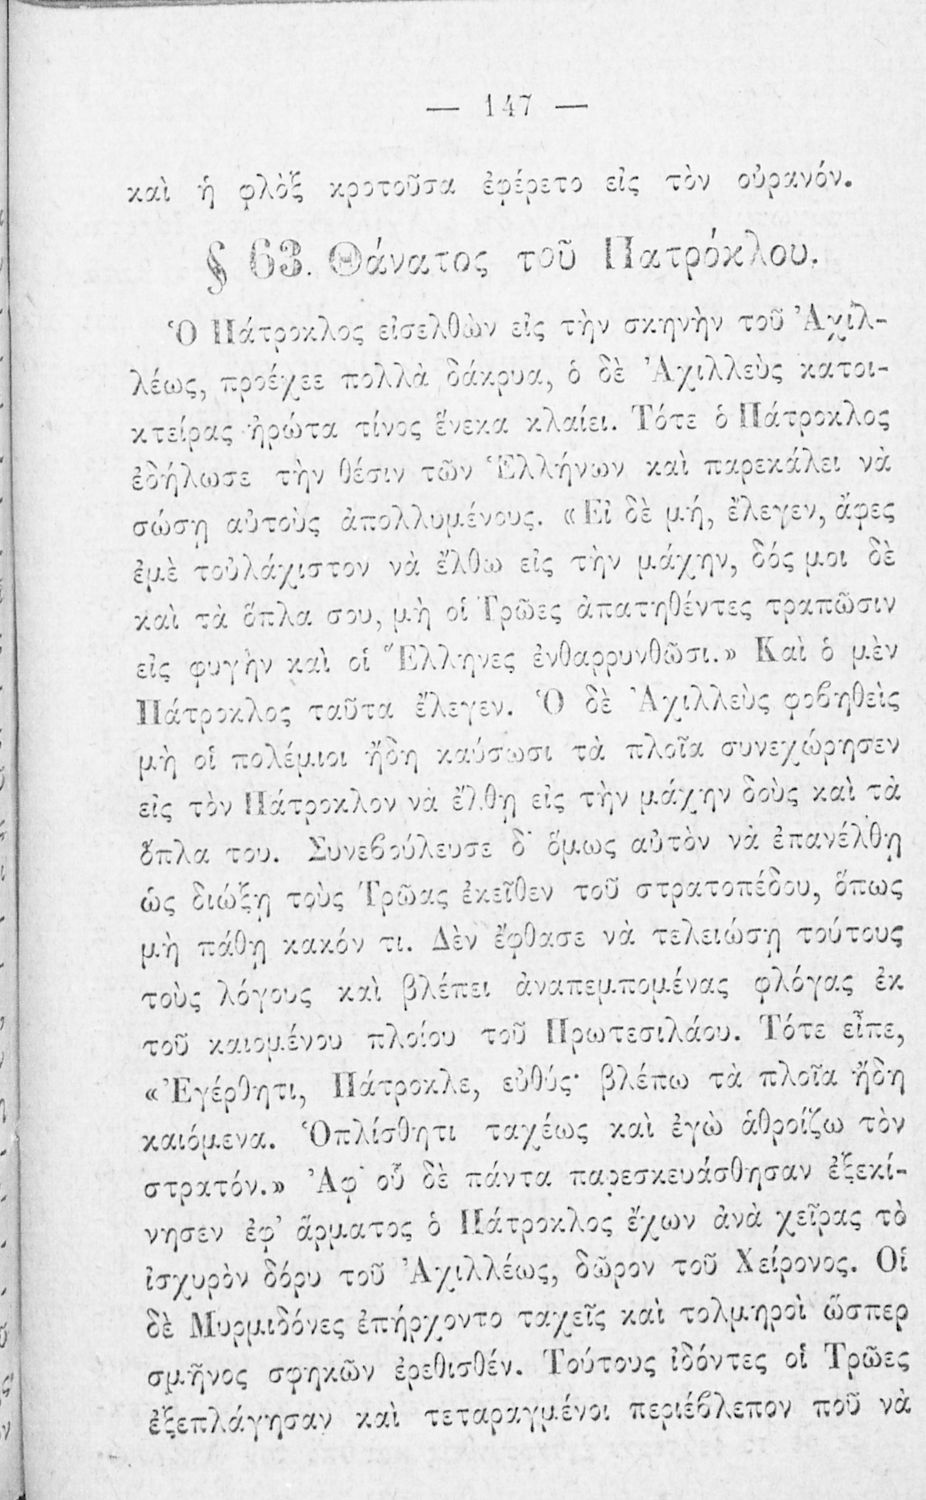 — 147 —
καὶ ἡ φλὸξ κροτοῦσα ἐφέρετο εἰς τὸν οὐρανόν.
§ 63. Θάνατος τοῦ Πατρόκλου.
Ὁ Πάτροκλος εἰσελθὼν εἰς τὴν σκηνὴν τοῦ Ἀχιλ-
λέως, προέχεε πολλὰ δάκρυα, ὁ δὲ Ἀχιλλεὺς κατοι-
κτείρας ἠρώτα τίνος ἕνεκα κλαίει. Τότε ὁ Πάτροκλος
ἐδήλωσε τὴν θέσιν τῶν Ἑλλήνων καὶ παρεκάλει νὰ
σώσῃ αὐτοὺς ἀπολλυμένους. «Εἰ δὲ μή, ἔλεγεν, ἄφες
ἐμὲ τοὐλάχιστον νὰ ἔλθω εἰς τὴν μάχην, δός μοι δὲ
καὶ τὰ ὅπλα σου, μὴ οἱ Τρῶες ἀπατηθέντες τραπῶσιν
εἰς φυγὴν καὶ οἱ Ἕλληνες ἐνθαρρυνθῶσι.» Καὶ ὁ μὲν
Πάτροκλος ταῦτα ἔλεγεν. Ὁ δὲ Ἀχιλλεὺς φοβηθεὶς
μὴ οἱ πολέμιοι ἤδη καύσωσι τὰ πλοῖα συνεχώρησεν
εἰς τὸν Πάτροκλον νὰ ἔλθῃ εἰς τὴν μάχην δοὺς καὶ τὰ
ὅπλα του. Συνεβούλευσε δ' ὅμως αὐτὸν νὰ ἐπανέλθῃ
ὡς διώξῃ τοὺς Τρῶας ἐκεῖθεν τοῦ στρατοπέδου, ὅπως
μὴ πάθῃ κακόν τι. Δὲν ἔφθασε νὰ τελειώσῃ τούτους
τοὺς λόγους καὶ βλέπει ἀναπεμπομένας φλόγας ἐκ
τοῦ καιομένου πλοίου τοῦ Πρωτεσιλάου. Τότε εἶπε,
«Ἐγέρθητι, Πάτροκλε, εὐθύς· βλέπω τὰ πλοῖα ἤδη
καιόμενα. Ὁπλίσθητι ταχέως καὶ ἐγὼ ἀθροίζω τὸν
στρατόν.» Ἀφ' οὗ δὲ πάντα παρεσκευάσθησαν ἐξεκί-
νησεν ἐφ' ἅρματος ὁ Πάτροκλος ἔχων ἀνὰ χεῖρας τὸ
ἰσχυρὸν δόρυ τοῦ Ἀχιλλέως, δῶρον τοῦ Χείρονος. Οἱ
δὲ Μυρμιδόνες ἐπήρχοντο ταχεῖς καὶ τολμηροὶ ὥσπερ
σμῆνος σφηκῶν ἐρεθισθέν. Τούτους ἰδόντες οἱ Τρῶες
ἐξεπλάγησαν καὶ τεταραγμένοι περιέβλεπον ποῦ νὰ